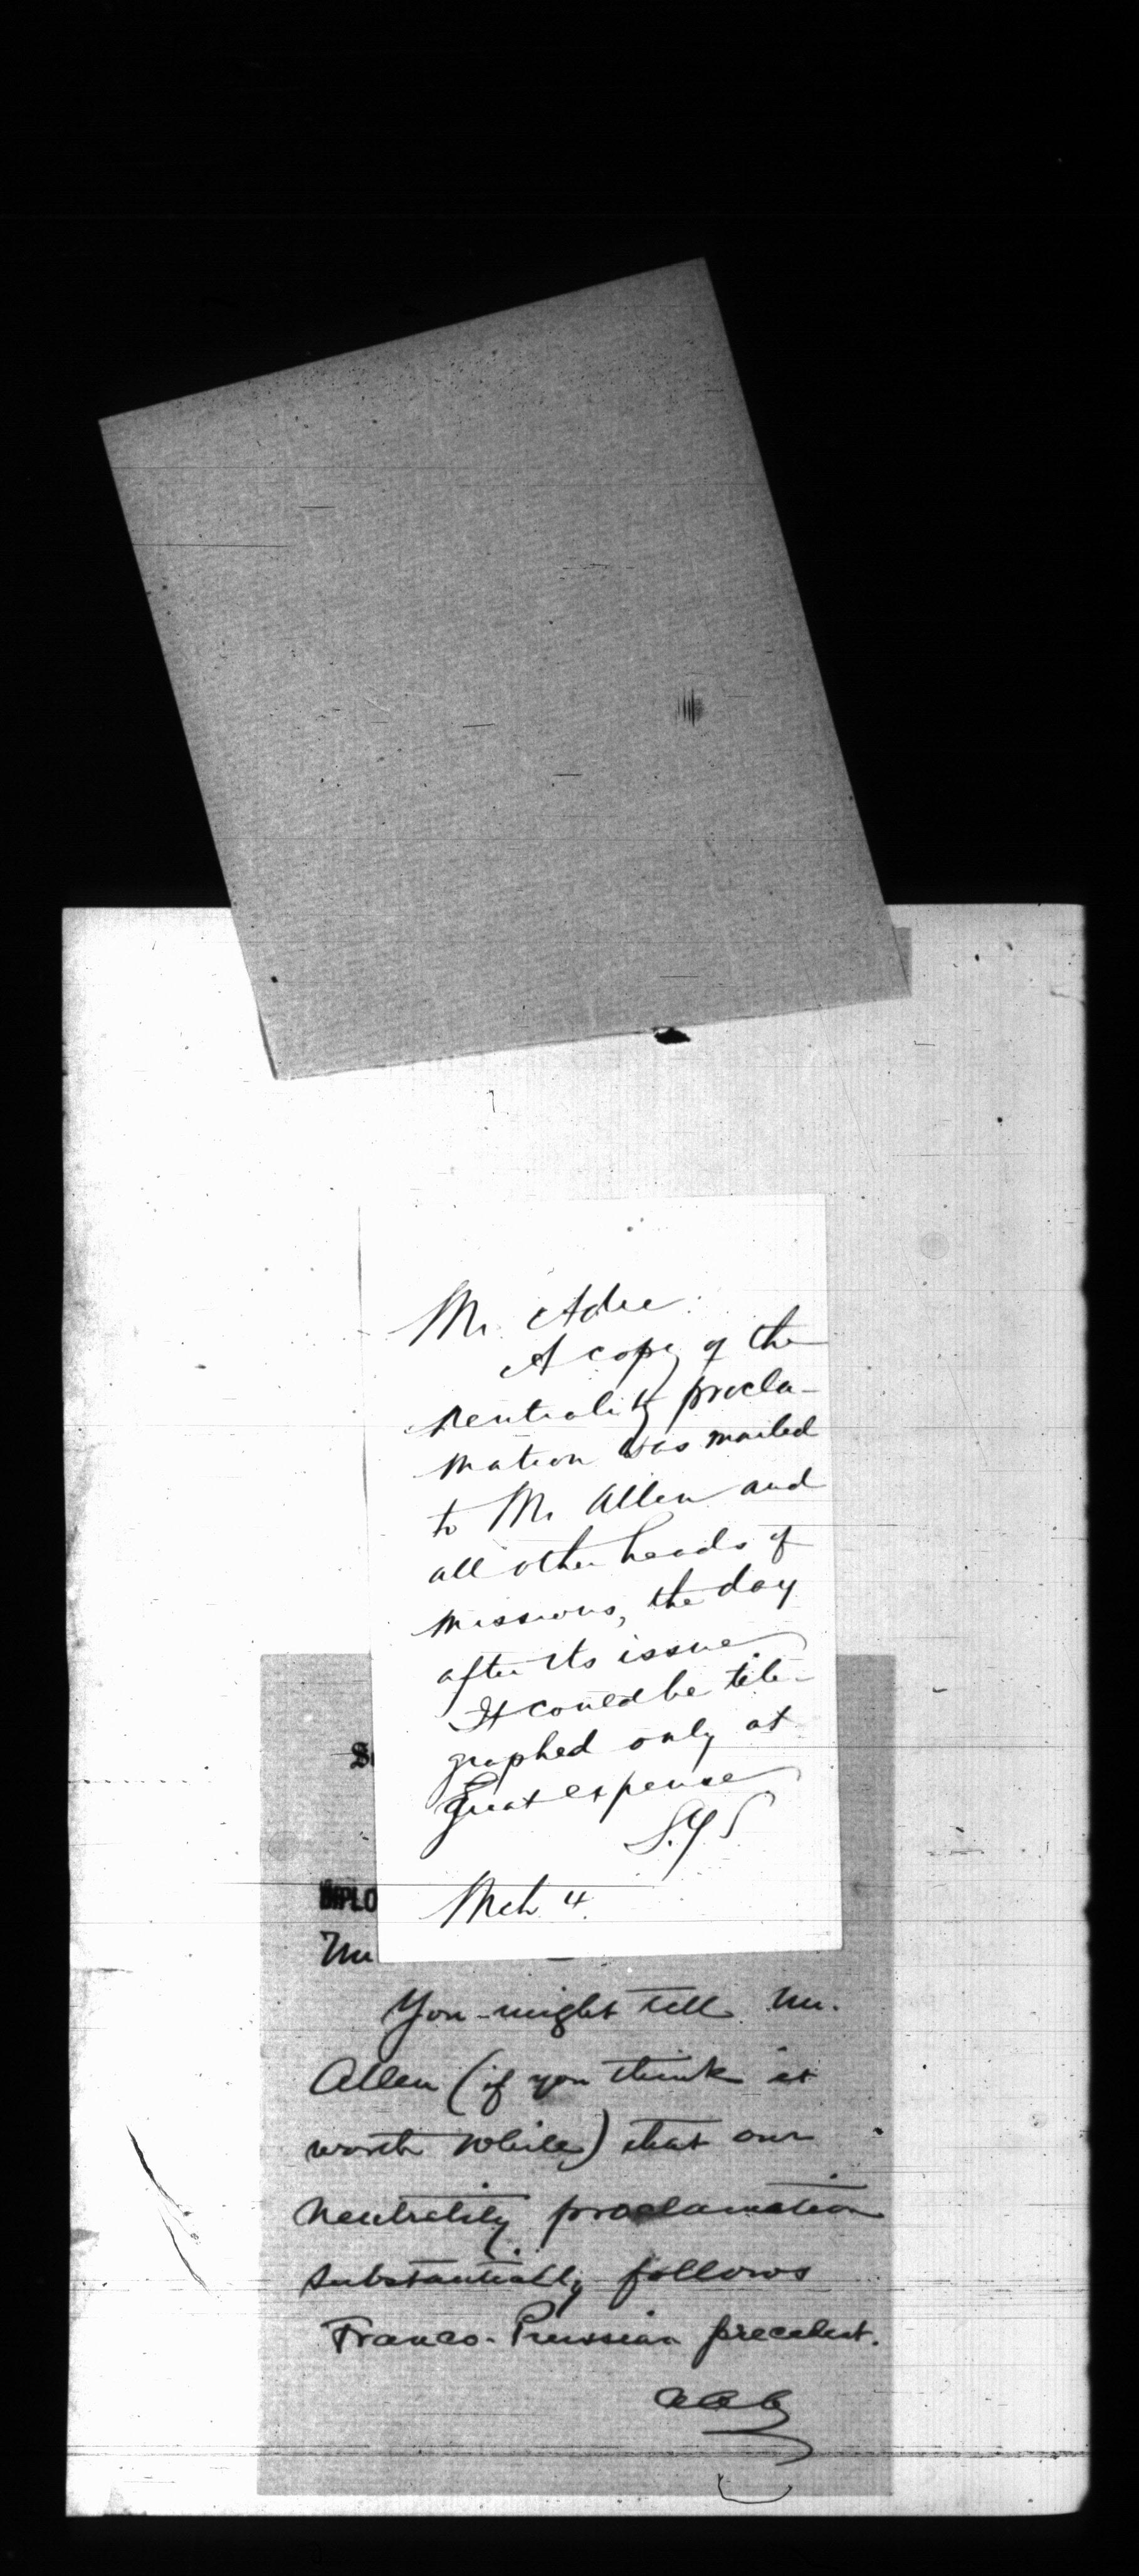 Mr. Adee:
A copy of the
neutrality procla-
mation was mailed
to Mr Allen and
all other heads of
missions, the day
after its issue
It could be tele-
graphed only at
great expense
S.Y.S
Mch 4.
DIPLO
You might tell Mr.
Allen (if you think it
worth while) that our
neutrality proclamation
substantially follows
Franco-Prussian precedent.